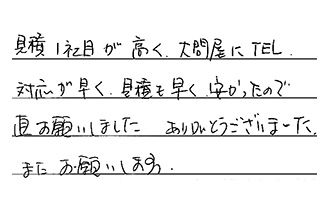 見積1社目が高く、大問屋にTEL.
対応が早く、見積も早く安かったので
直お願いしました ありがとうございました、
またお願いします。